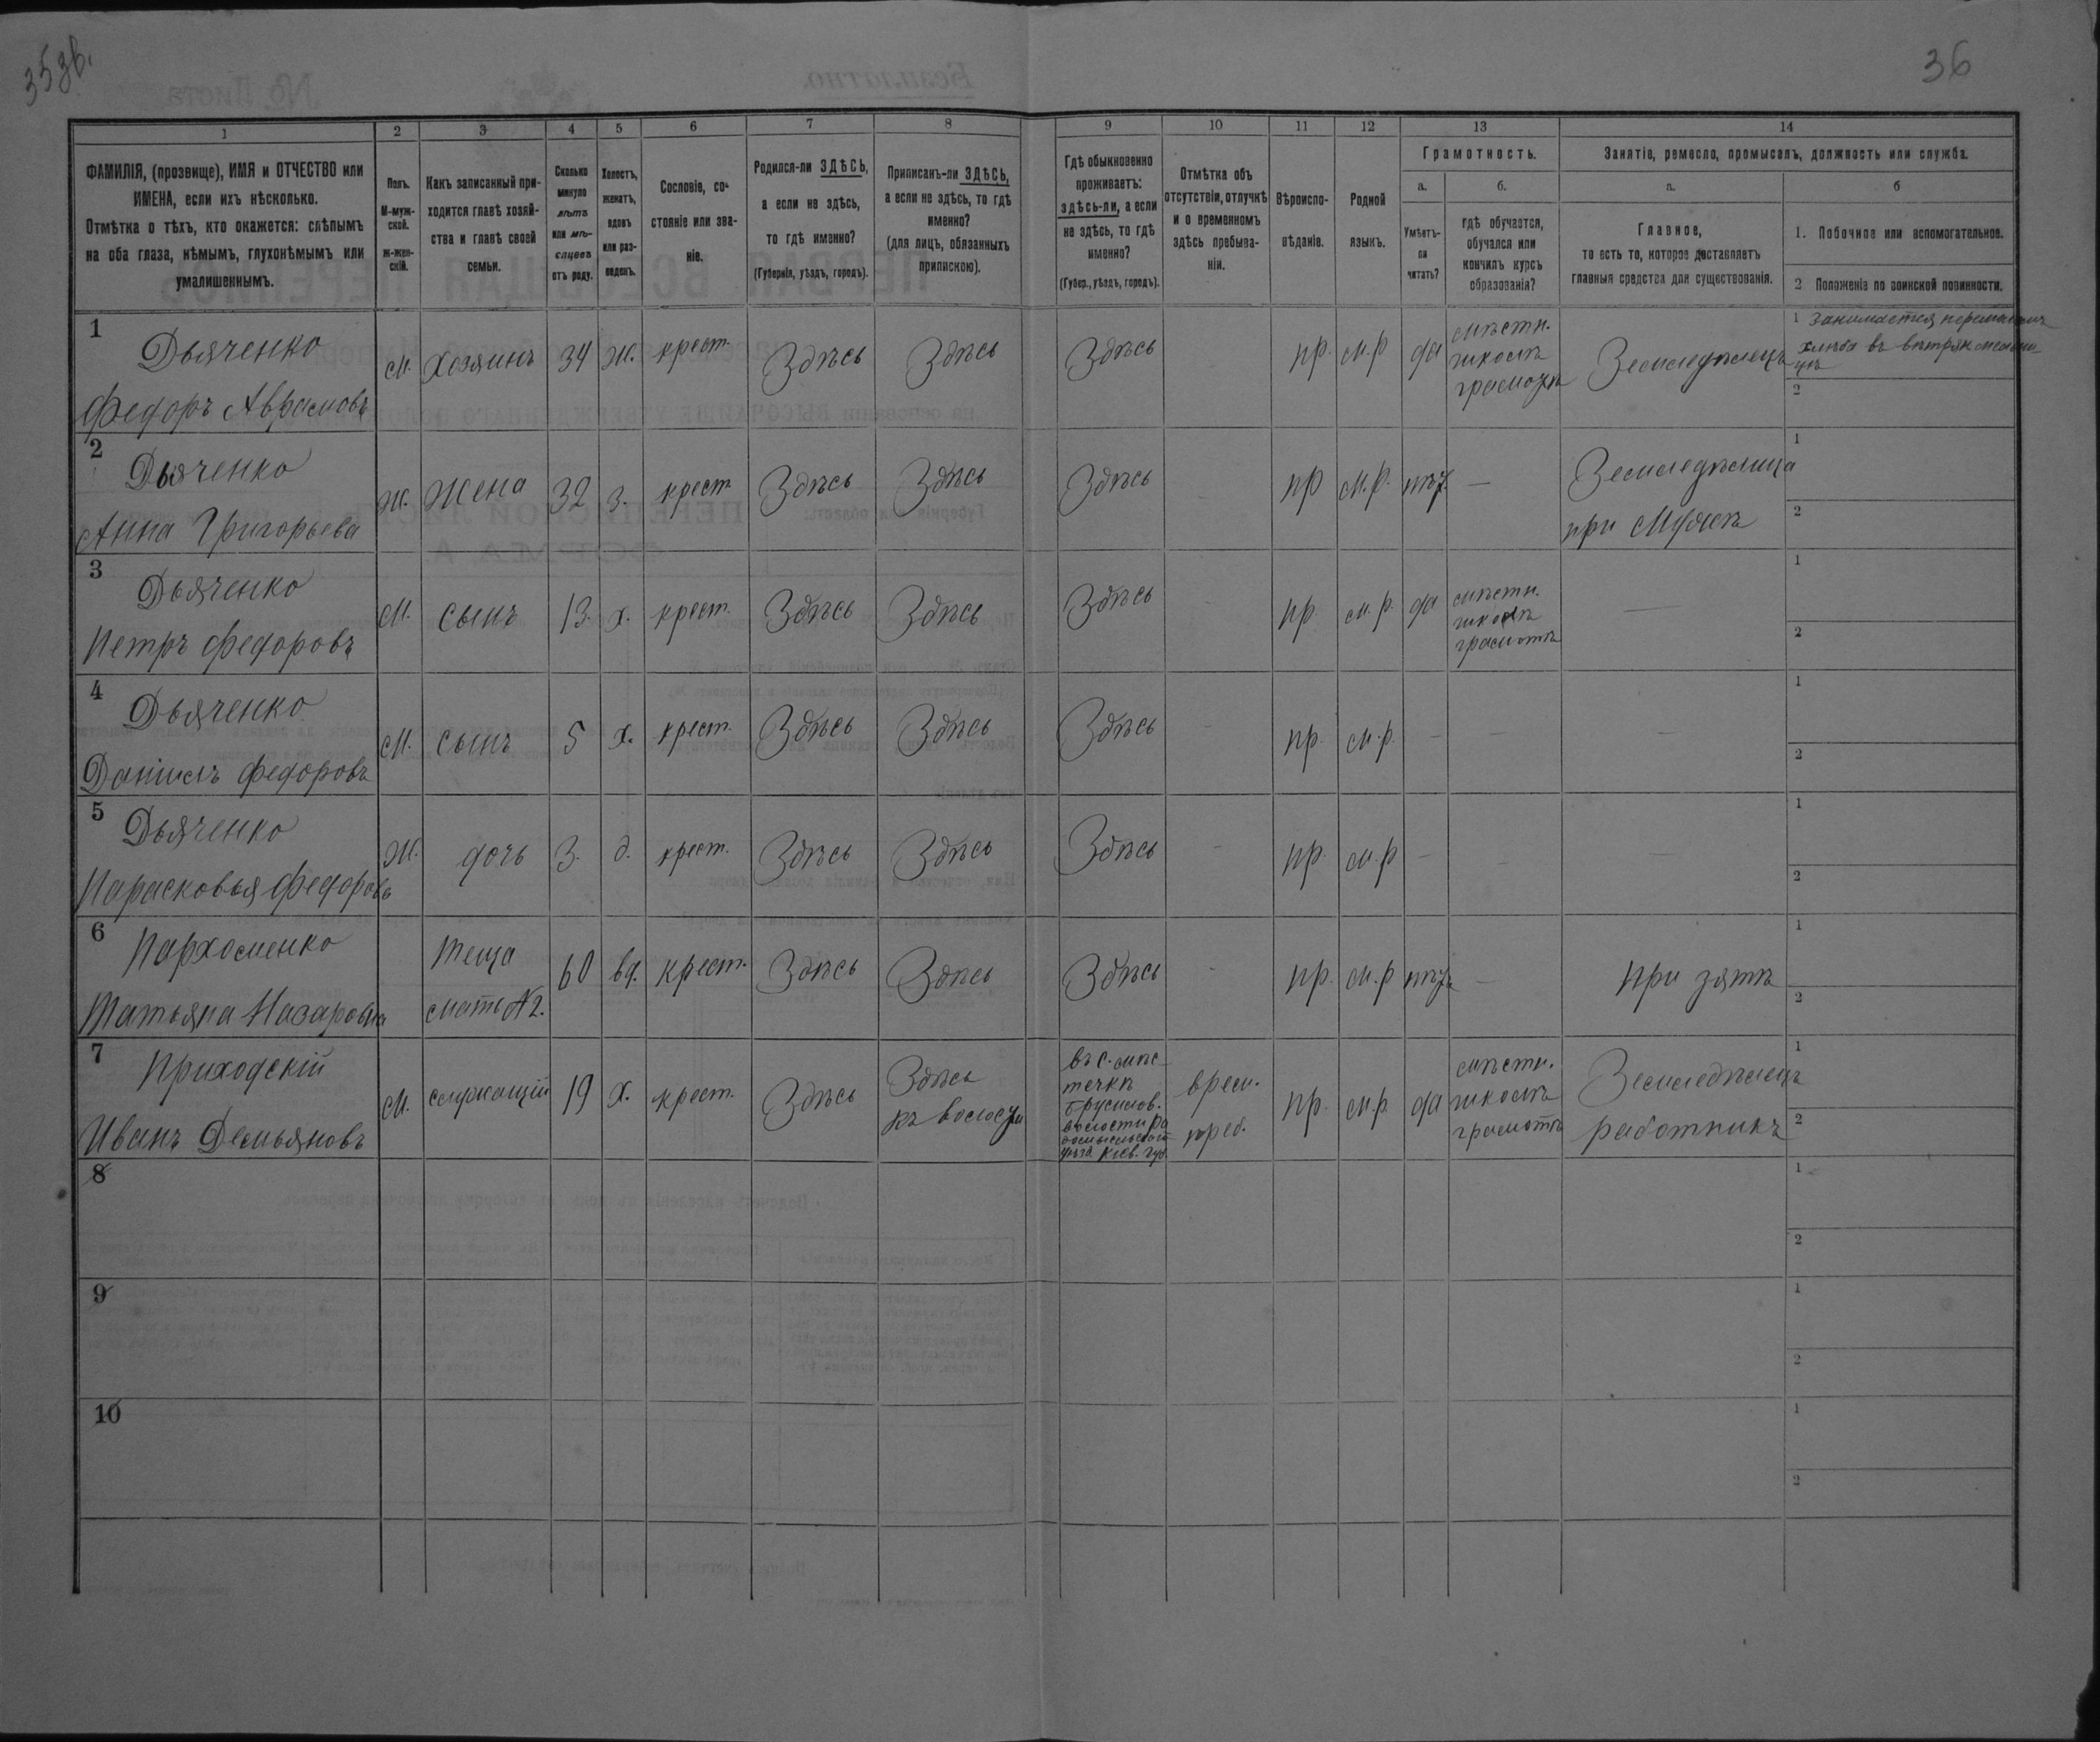 35 зв.
36
1
2
3
4
5
6
7
8
9
10
11
12
13
14
ФАМИЛІЯ, (прозвище), ИМЯ и ОТЧЕСТВО или
ИМЕНА, если ихъ нѣсколько.
Отмѣтка о тѣхъ, кто окажется: слѣпымъ
на оба глаза, нѣмымъ, глухонѣмымъ или
умалишеннымъ.
Полъ.
М-муж-
ской.
ж-жен-
скій.
Какъ записанный при-
ходится главѣ хозяй-
ства и главѣ своей
семьи.
Сколько
минуло
лѣтъ
или мѣ-
сяцевъ
отъ роду.
Холостъ,
женатъ,
вдовъ
или раз-
веденъ.
Сословіе, со-
стояніе или зва-
ніе.
Родился-ли ЗДѢСЬ,
а если не здѣсь,
то гдѣ именно?
(Губернія, уѣздъ, городъ).
Приписанъ-ли ЗДѢСЬ,
а если не здѣсь, то гдѣ
именно?
(для лицъ, обязанныхъ
припискою).
Гдѣ обыкновенно
проживаетъ:
здѣсь-ли, а если
не здѣсь, то гдѣ
именно?
(Губер., уѣздъ, городъ).
Отмѣтка объ
отсутствіи, отлучкѣ
и о временномъ
здѣсь пребыва-
ніи.
Вѣроиспо-
вѣданіе.
Родной
языкъ.
Грамотность.
а.
Умѣетъ-
ли
читать?
б.
гдѣ обучается,
обучался или
кончилъ курсъ
образованія?
Занятіе, ремесло, промыселъ, должность или служба.
а.
Главное,
то есть то, которое доставляетъ
главныя средства для существованія.
б
1. Побочное или вспомогательное.
2 Положеніе по воинской повинности.
1
Дьяченко
Федоръ Аврамовъ
м.
хозяинъ
34
ж.
крест.
Здѣсь
Здѣсь
Здѣсь
пр.
м.р
да
мѣстн.
школѣ
грамотѣ
Земледѣлецъ
1 Занимается перемоломъ
хлѣба въ вѣтряк. мельни-
цѣ
2
2
Дьяченко
Анна Григорьева
ж.
жена
32
з.
крест
Здѣсь
Здѣсь
Здѣсь
пр
м.р.
нѣт.
—
Земледѣлица
при мужѣ
1
2
3
Дьяченко
Петръ Федоровъ
м.
сынъ
13.
х.
крест.
Здѣсь
Здѣсь
Здѣсь
-
пр
м.р.
да
мѣстн.
школѣ
грамотѣ
—
1
2
4
Дьяченко
Даніилъ Федоровъ
м.
сынъ
5
х.
крест.
Здѣсь
Здѣсь
Здѣсь
-
пр.
м.р.
-
-
-
1
2
5
Дьяченко
Парасковья Федоровъ
ж.
дочь
3.
д.
крест.
Здѣсь
Здѣсь
Здѣсь
-
пр.
м.р
-
-
-
1
2
6
Пархоменко
Татьяна Назарова
теща
мать №2.
60
вд.
крест.
Здѣсь
Здѣсь
Здѣсь
-
пр.
м.р
нѣтъ
-
при зятѣ
1
2
7
Приходскій
Иванъ Демьяновъ
м.
служащій
19
х.
крест.
Здѣсь
Здѣсь
къ волости
въ с. мѣс
течкѣ
Брусилов.
волости Ра
домысльскаго
уѣзд. Кіев. губ.
врем.
преб.
пр.
м.р.
да
мѣстн.
школѣ
грамотѣ
Земледѣлецъ
работникъ
1
2
8
1
2
9
1
2
10
1
2